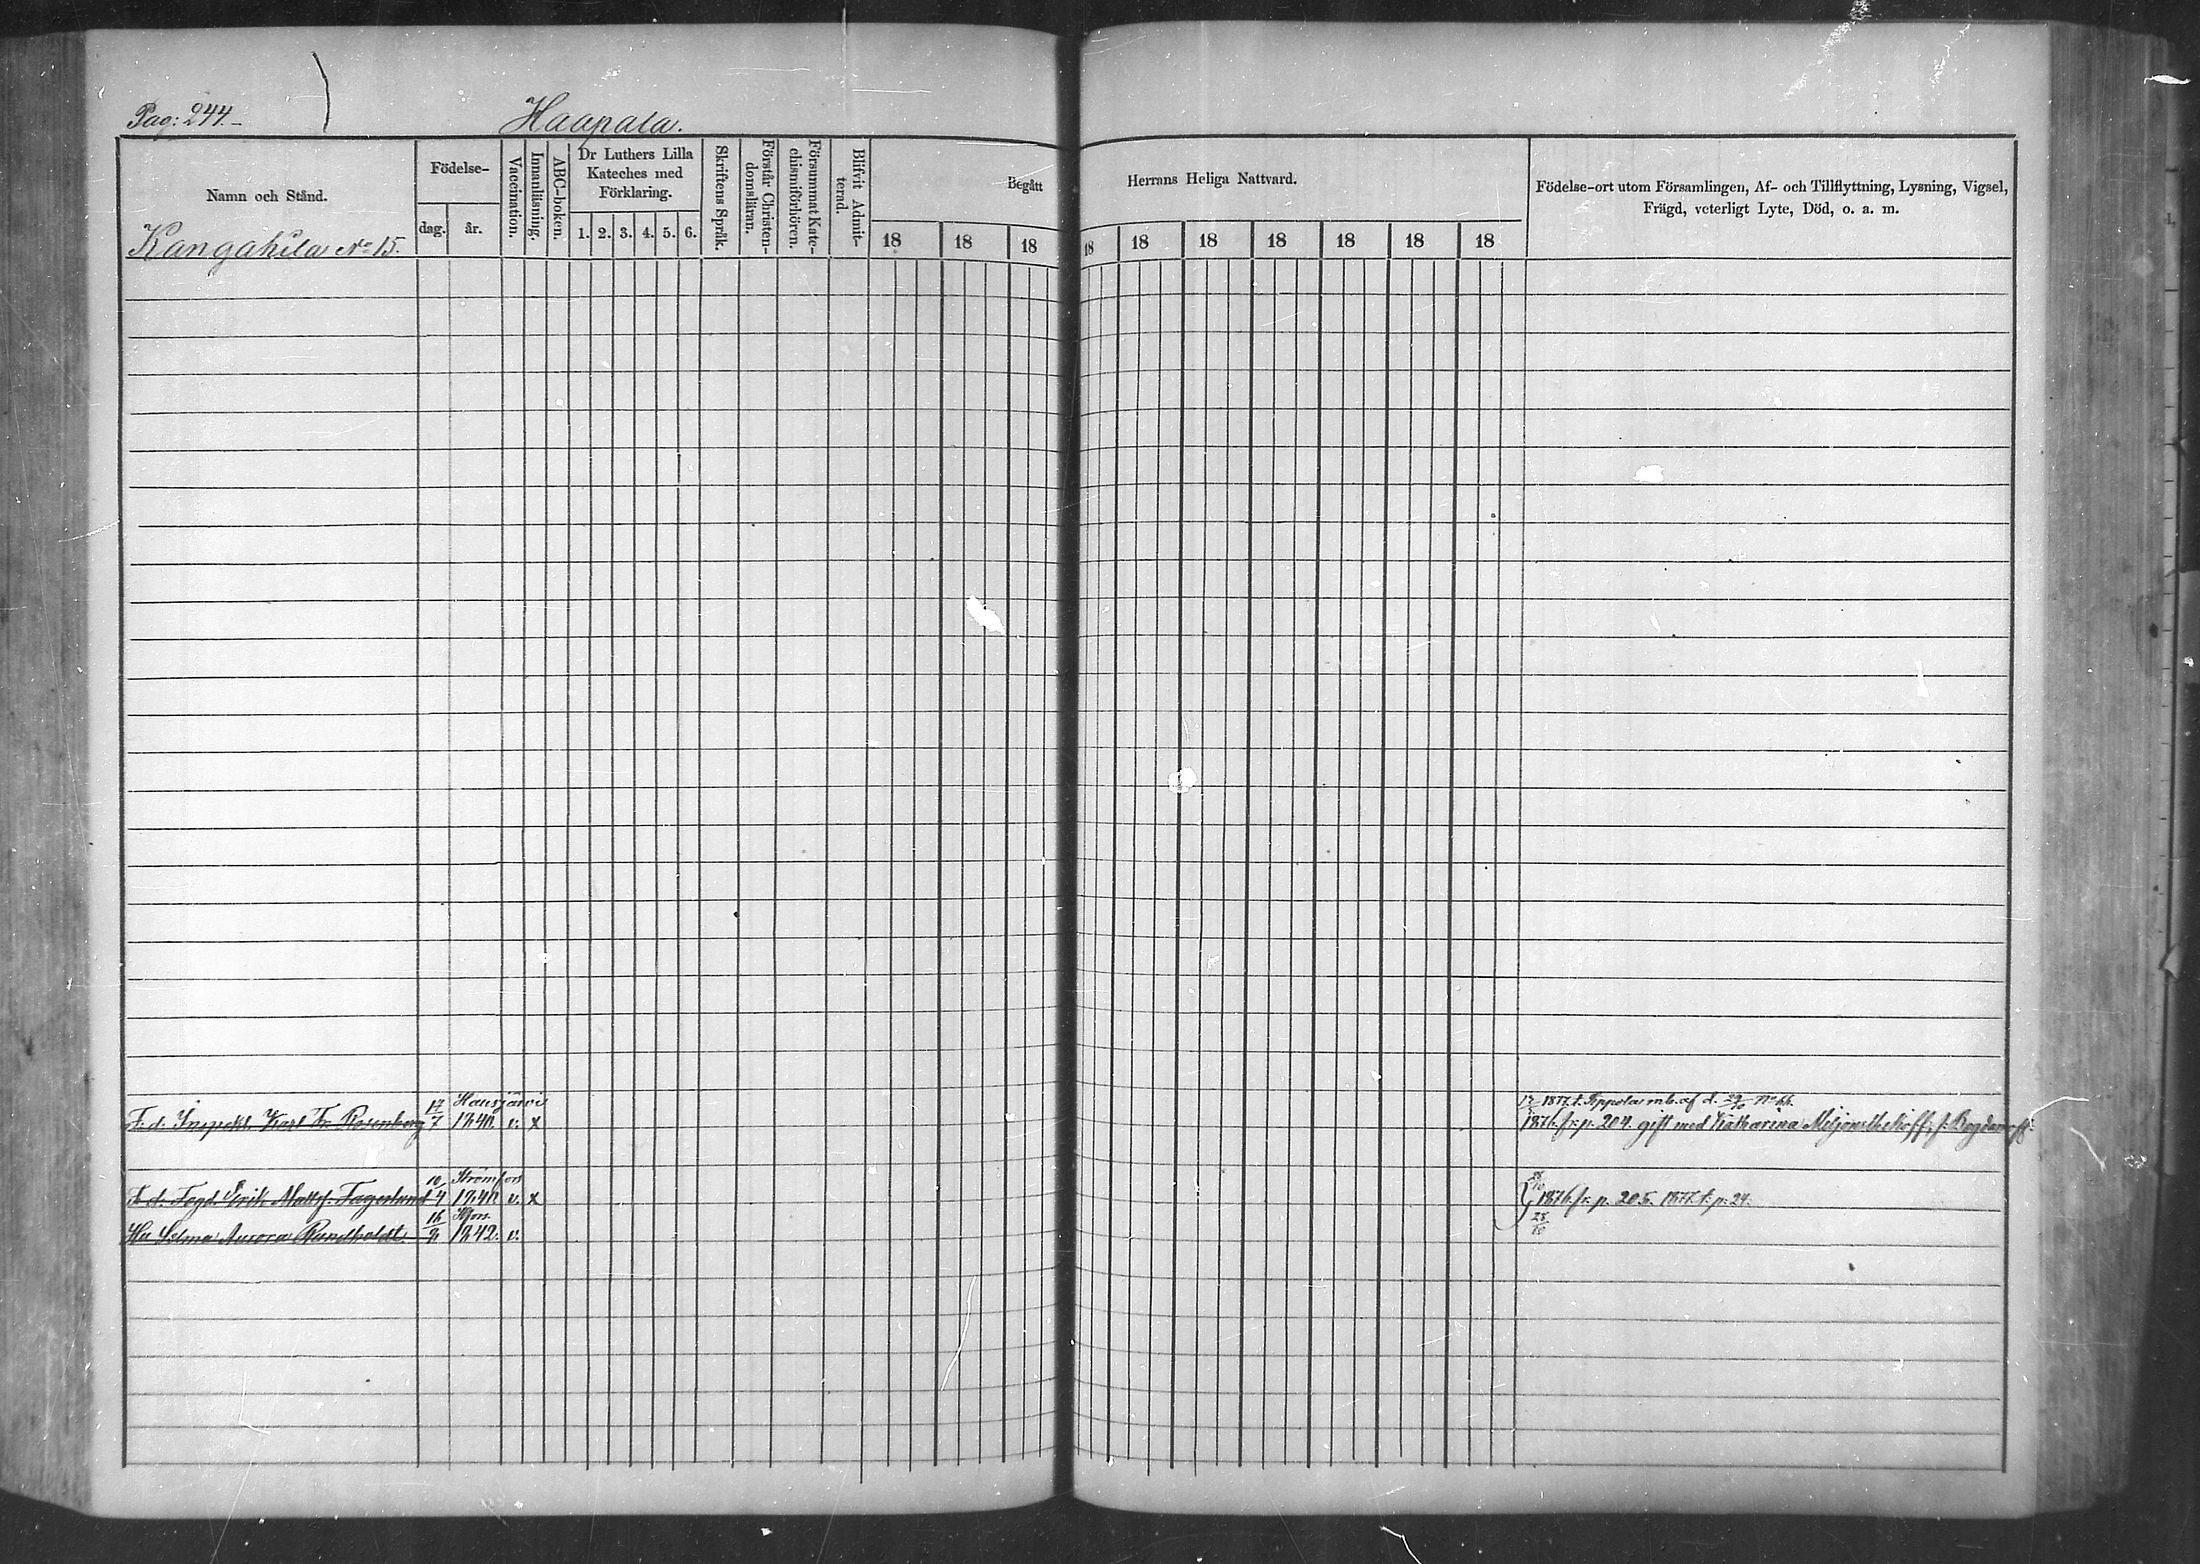 Pag: 244.
Haapala.
Namn och Stånd.
Födelse-
dag.
år.
Vaccination.
Innanläsning.
ABC-boken.
Dr Luthers Lilla
Kateches med
Förklaring.
1. 2. 3. 4. 5. 6.
Skriftens Språk.
Förstår Christen-
domsläran.
Försummat Kate-
chismiförhören.
Blifvit Admit-
terad.
Begått
Herrans Heliga Nattvard.
18 18 18 18 18 18 18 18 18 18
Födelse-ort utom Församlingen, Af- och Tillflyttning, Lysning, Vigsel,
Frägd, veterligt Lyte, Död, o. a. m.
Kangakila No 15.
17 Hausjärvi
F. d. Inspekt. Karl Fr. Rosenberg 7 1840. v. x
1877. t. m. b. af d. No 66.
1876. fr. p. 204. gift med Katharina f.
10 Strömfors
F. d. Fogd. Erik Matts. Fagerlund 4 1840. v. x
1876. fr. p. 205. 1877. t. p. 24.
16 Hfors.
Hu Selma Aurora Rundholdt. 1842. v.
28/10